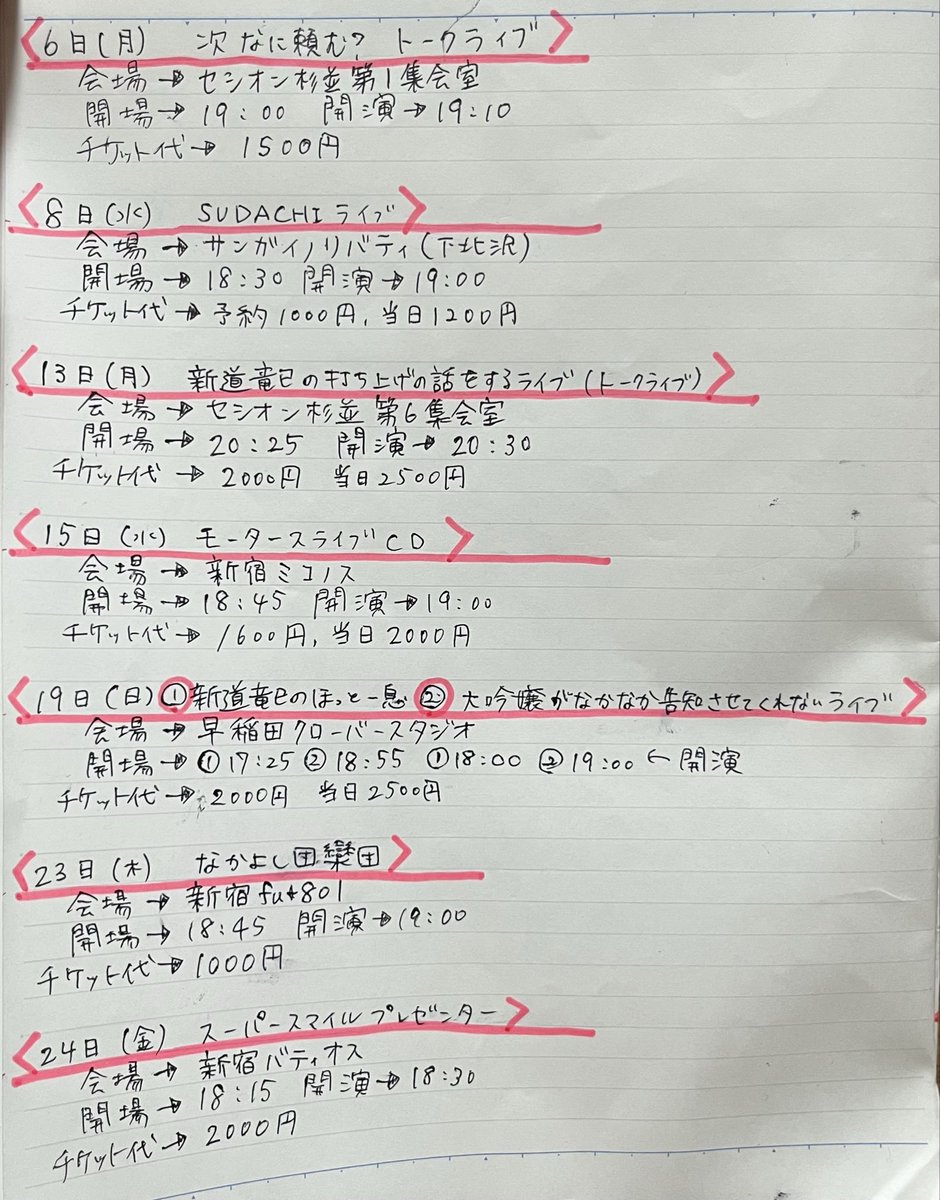 6日(月) 次なに頼む? トークライブ
会場→セシオン杉並第1集会室
開場→19:00 開演→19:10
チケット代→ 1500円
8日(水) SUDACHIライブ
会場→サンガイノリバティ(下北沢)
開場→18:30 開演→19:00
チケット代→予約1000円,当日1200円
13日(月) 新道竜巳の打ち上げの話をするライブ(トークライブ)
会場→セシオン杉並 第6集会室
開場→20:25 開演→20:30
チケット代→ 2000円 当日2500円
15日(水) モータースライブCD
会場→新宿ミコノス
開場→18:45 開演→19:00
チケット代→1600円,当日2000円
19日(日)①新道竜巳のほっと一息 ② 大吟嬢がなかなか告知させてくれないライブ
会場→早稲田クローバースタジオ
開場→①17:25 ②18:55 ①18:00 ②19:00←開演
チケット代→2000円 当日2500円
23日(木) なかよし団欒団
会場→新宿fu+801
開場→18:45 開演→19:00
チケット代→1000円
24日(金) スーパースマイルプレゼンター
会場→新宿バティオス
開場→18:15 開演→18:30
チケット代→2000円